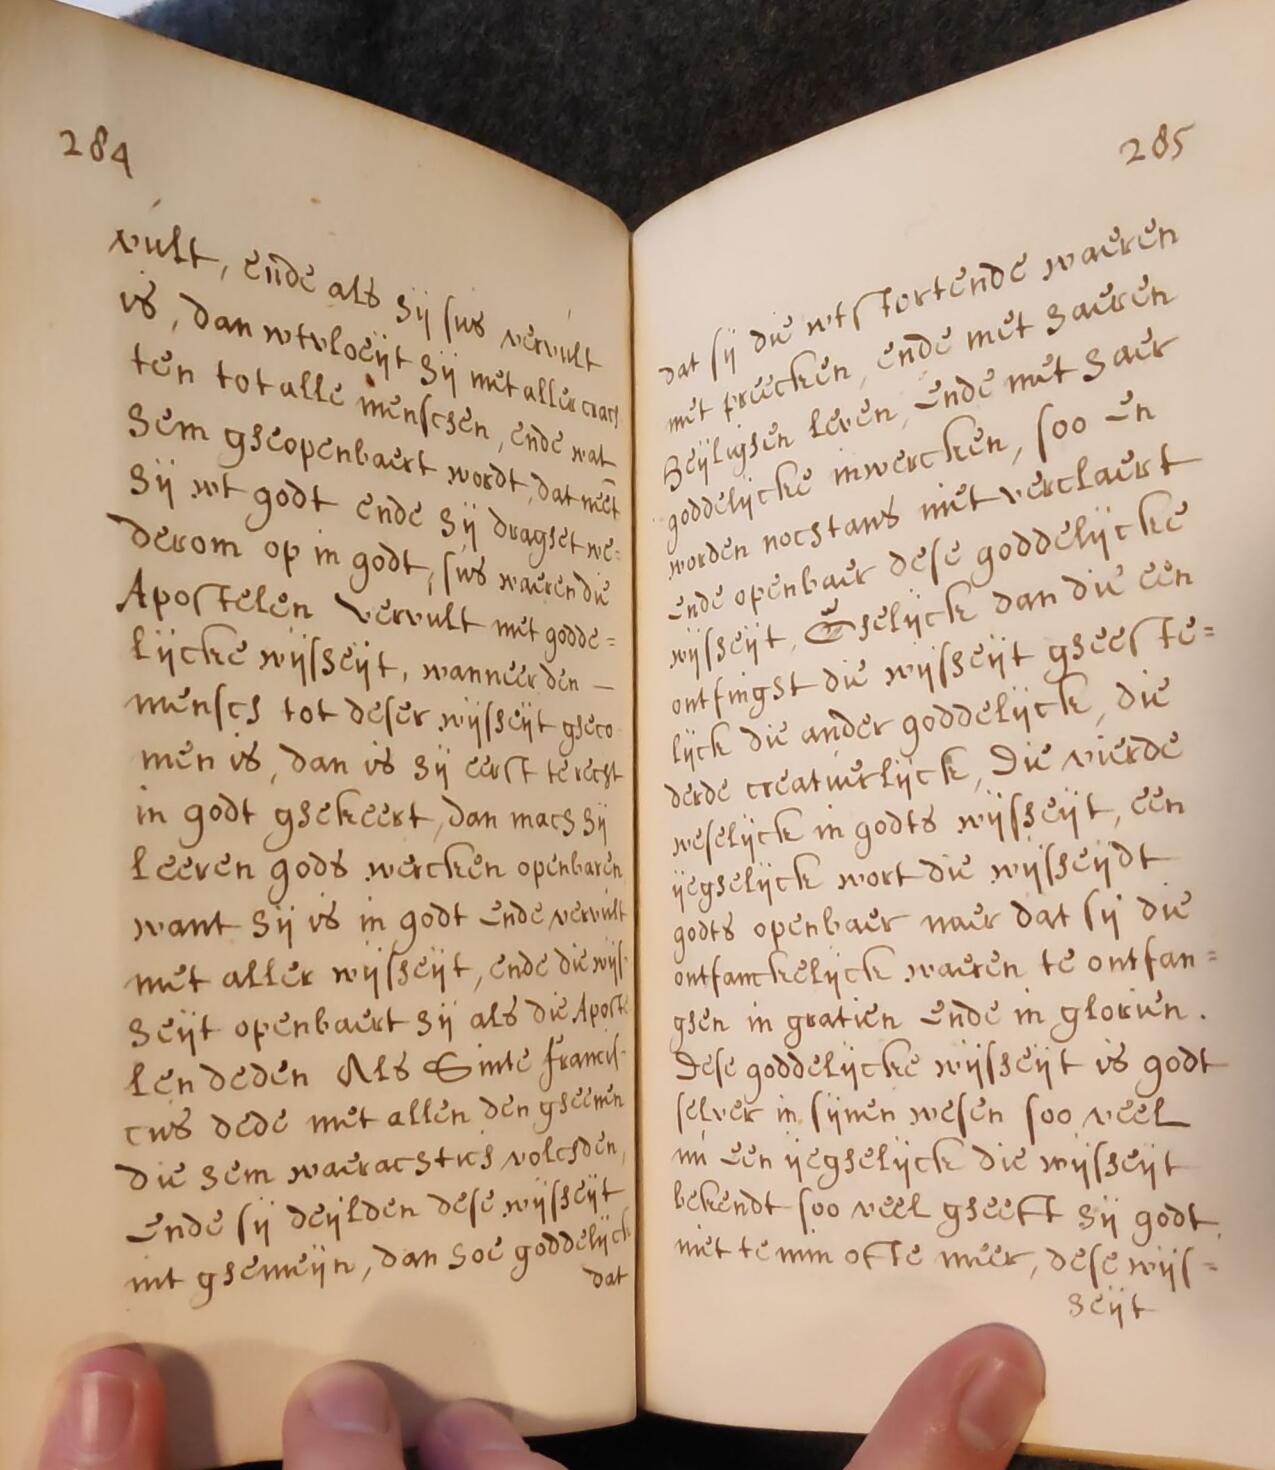 284
vult, ende als hij sus vervult
is, dan wtvloeijt hij met aller crach
ten tot alle menschen, ende wat
hem gheopenbaert wordt, dat neēt
hij wt godt ende hij draghet we=
derom op in godt, sus waeren die
Apostelen vervult met godde=
lijcke wijsheijt, wanneer den —
mensch tot deser wijsheijt gheco
men is, dan is hij eerst te recht
in godt ghekeert, dan mach hij
leeren gods wercken openbaren
want hij is in godt ende vervult
met aller wijsheijt, ende die wijs-
heijt openbaert hij als die Aposte
len deden Als Sinte francis-
cus dede met allen den gheenen
die hem waerachtich volchden,
ende sij deijlden dese wijsheijt
int ghemeijn, dan hoe goddelijck
dat
285
dat sij die wtstortende waeren
met preecken, ende met haeren
heijlighen leven, ende met haer
goddelijcke inwercken, soo en
worden nochtans niet verclaert
ende openbaer dese goddelijcke
wijsheijt, Ghelijck dan die een
ontfinght die wijsheijt gheeste=
lijck die ander goddelijck, die
derde creatuerlijck, Die vierde
weselijck in godts wijsheijt, een
ijeghelijck wort die wijsheijdt
godts openbaer naer dat sij die
ontfanckelijck waeren te ontfan=
ghen in gratien ende in glorien.
Dese goddelijcke wijsheijt is godt
selver in sijnen wesen soo veel
nu een ijeghelijck die wijsheijt
bekendt soo veel gheeft hij godt,
niet te min ofte meer, dese wijs=
heijt